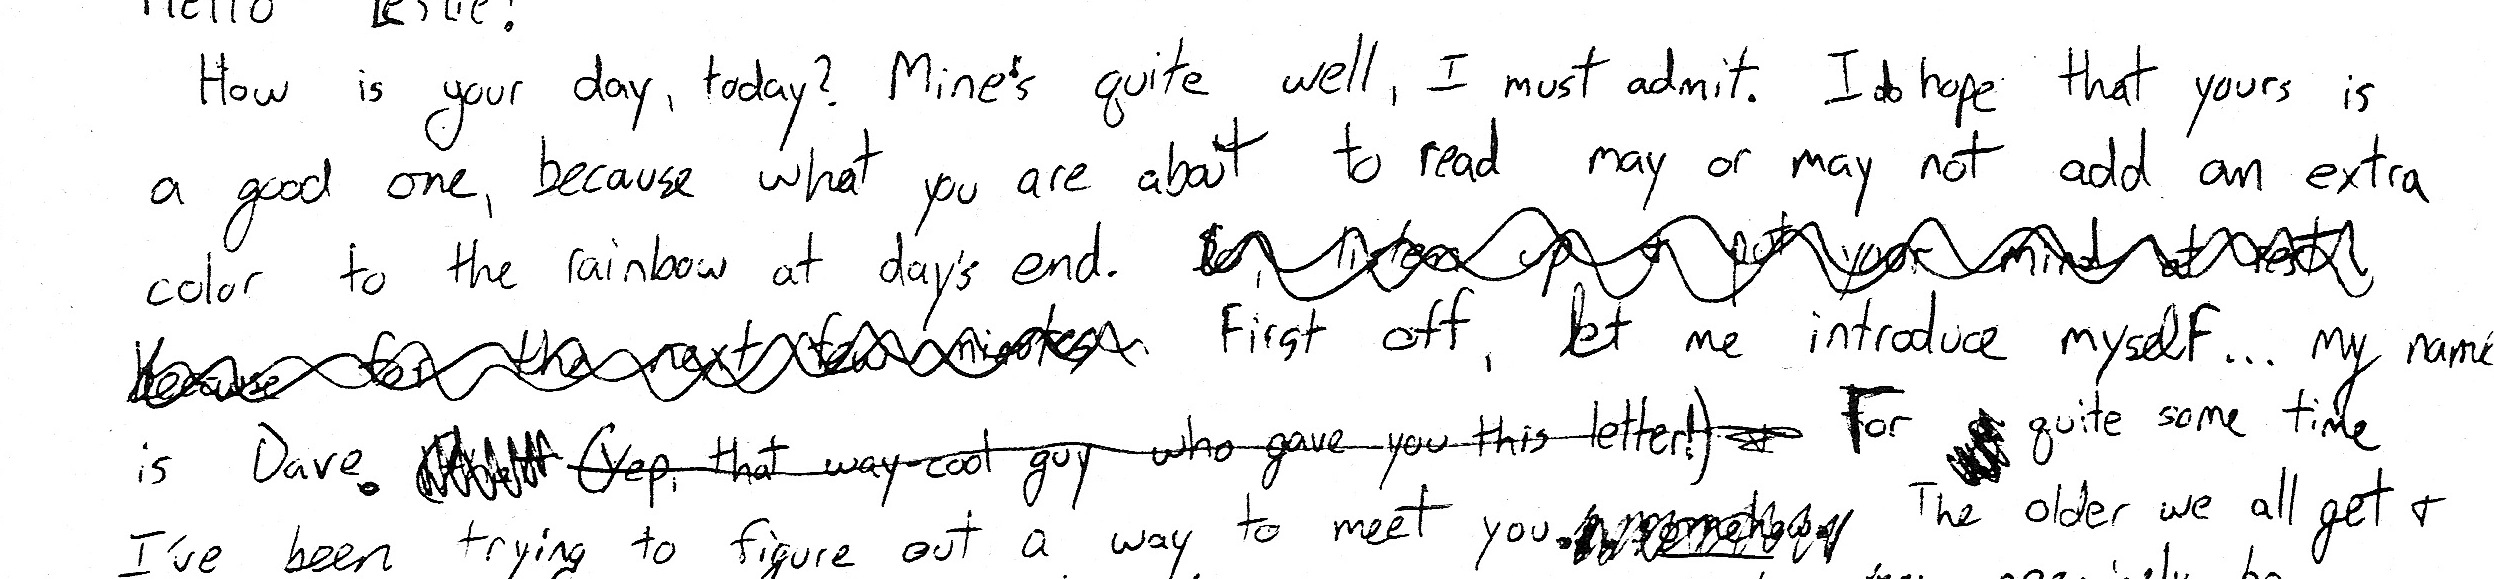 Hello Leslie!
How is your day, today? Mine's quite well, I must admit. I do hope that yours is
a good one, because what you are about to read may or may not add an extra
color to the rainbow at day's end. So, listen up + put your mind at rest
because for the next few minutes First off, let me introduce myself... My name
is Dave. (Yep, that way-cool guy who gave you this letter!) For quite some time
I've been trying to figure out a way to meet you. somehow. The older we all get +